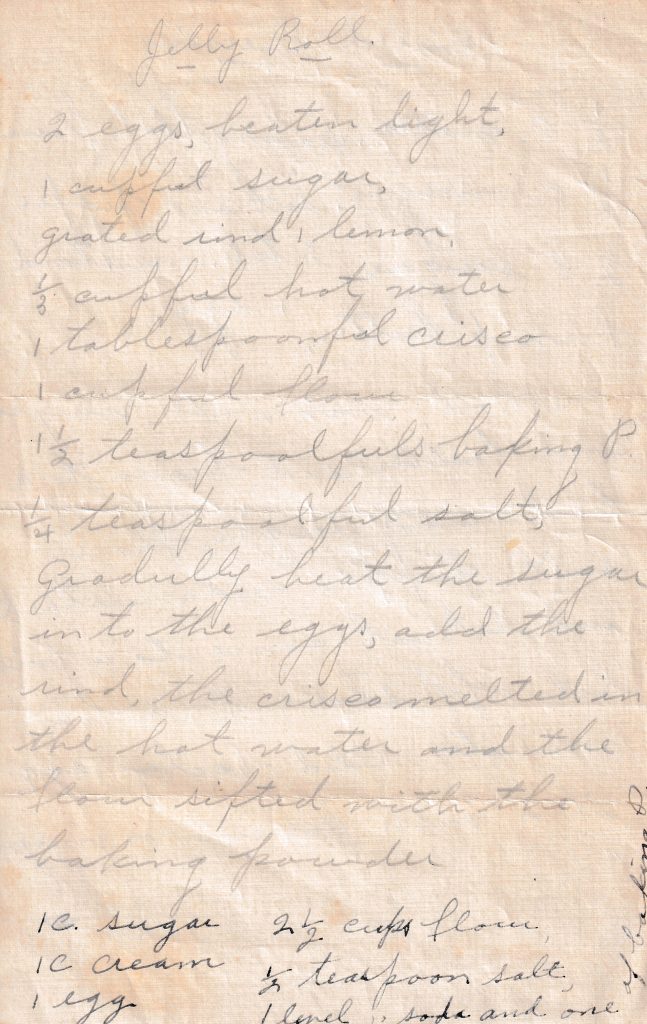 Jelly Roll.
2 eggs, beaten light,
1 cupful sugar,
grated rind 1 lemon,
1/3 cupful hot water
1 tablespoonful crisco
1 cupful flour
1 1/2 teaspoolfuls baking P.
1/4 teaspoolful salt,
Gradully beat the sugar
in to the eggs, add the
rind, the crisco melted in
the hot water and the
flour sifted with the
baking powder
1c. sugar
1c cream
1 egg
2 1/2 cups flour,
1/2 teaspoon salt,
1 level " soda and one
of baking P.